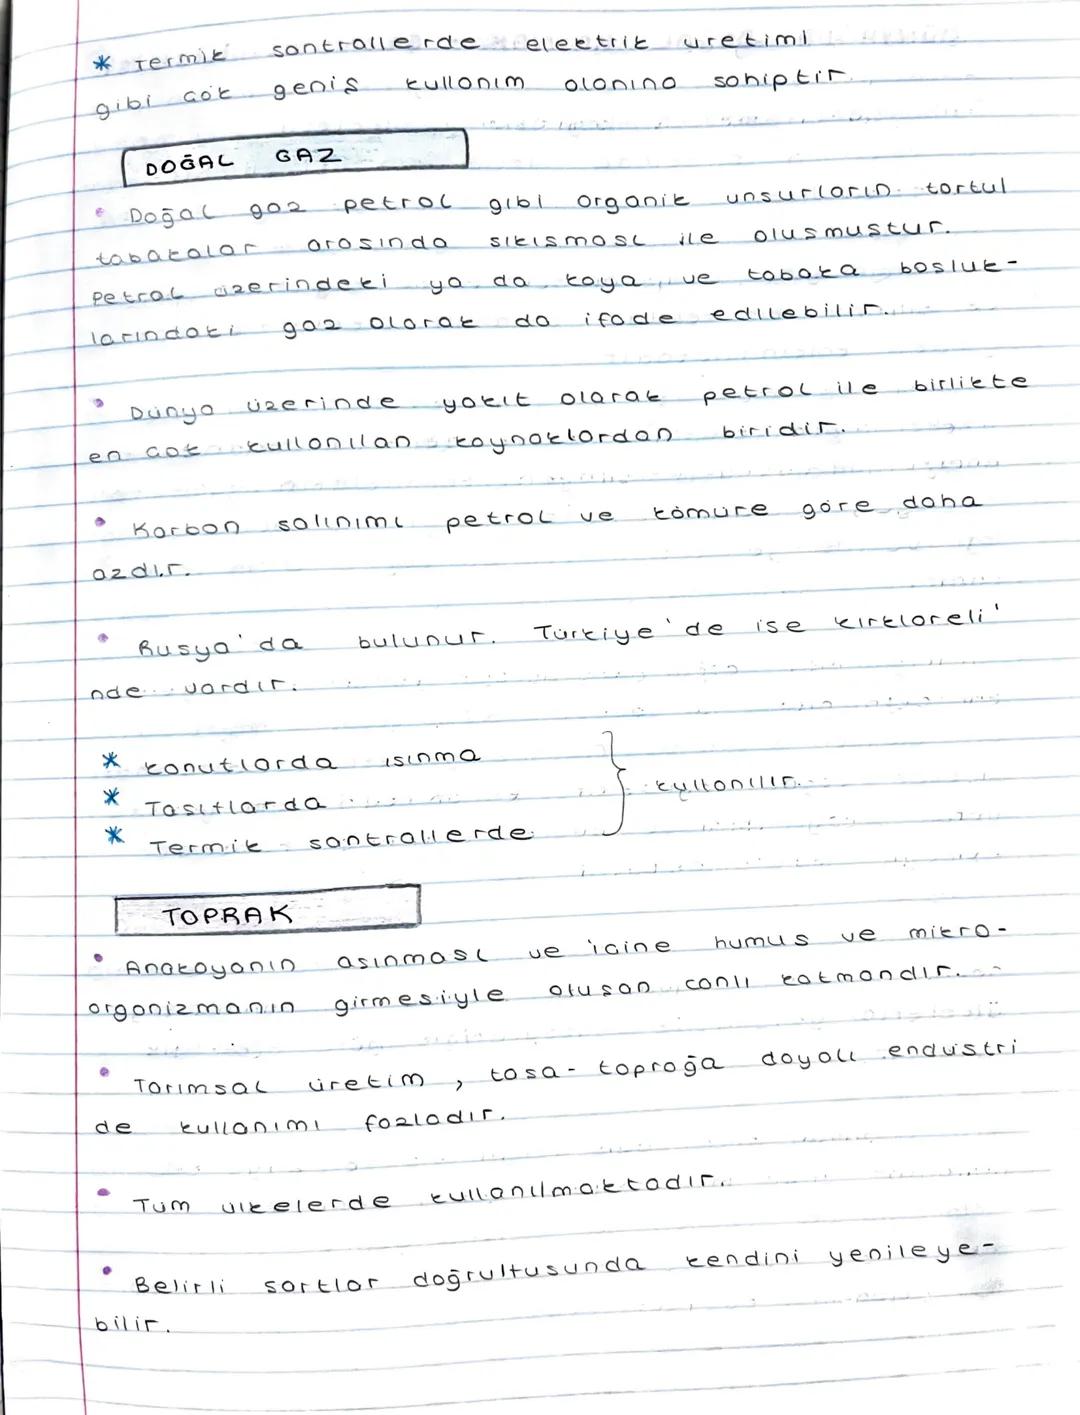 * Termik santrallerde elektrik üretimi
gibi çok geniş kullanım alanına sahiptir.
DOĞAL GAZ
• Doğal gaz petrol gibi organik unsurların tortul
tabakalar arasında sıkışması ile oluşmuştur.
Petrol üzerindeki ya da kaya ve tabaka boşluk-
larındaki gaz olarak da ifade edilebilir.
• Dünya üzerinde yakıt olarak petrol ile birlikte
en çok kullanılan kaynaklardan biridir.
• Karbon salınımı petrol ve kömüre göre daha
azdır.
• Rusya'da bulunur. Türkiye'de ise Kırklareli'
nde vardır.
* Konutlarda ısınma
* Taşıtlarda } kullanılır.
* Termik santrallerde
TOPRAK
• Anakayanın aşınması ve içine humus ve mikro-
organizmanın girmesiyle oluşan canlı katmandır.
• Tarımsal üretim, taşa-toprağa dayalı endüstri
de kullanımı fazladır.
• Tüm ülkelerde kullanılmaktadır.
• Belirli şartlar doğrultusunda kendini yenileye-
bilir.